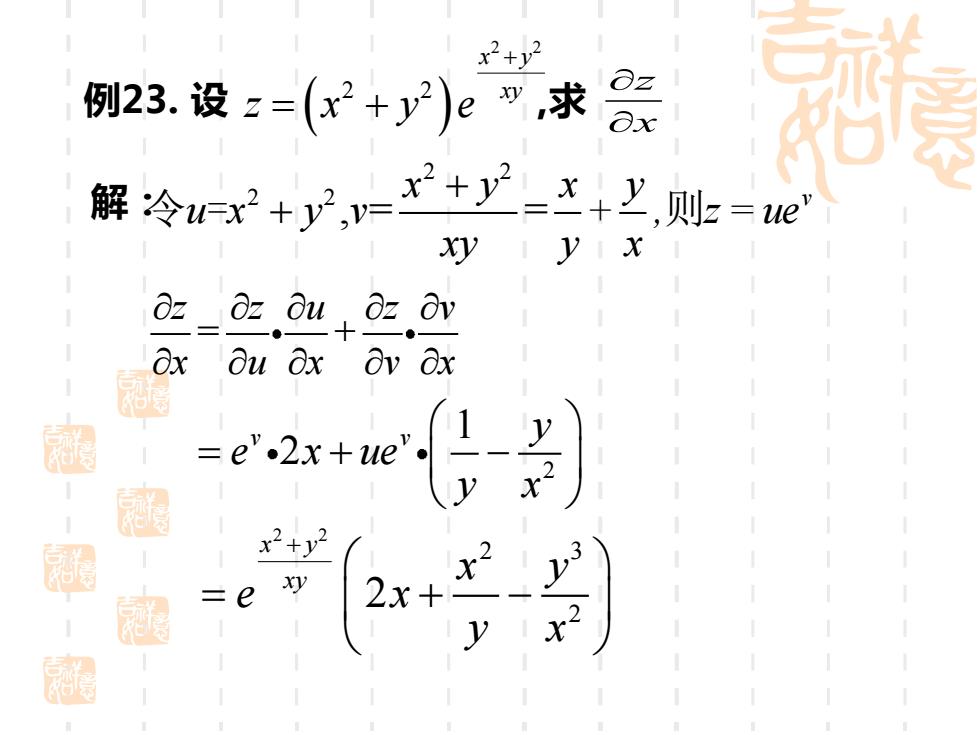 例23. 设 z = (x² + y²) e^{\frac{x²+y²}{xy}} ,求 \frac{∂z}{∂x}
解：令u=x² + y²,v=\frac{x² + y²}{xy}=\frac{x}{y}+\frac{y}{x},则z = ue^{v}
\frac{∂z}{∂x}=\frac{∂z}{∂u}•\frac{∂u}{∂x}+\frac{∂z}{∂v}•\frac{∂v}{∂x}
= e^{v}•2x+ue^{v}•(\frac{1}{y}−\frac{y}{x²})
= e^{\frac{x²+y²}{xy}}(2x+\frac{x²}{y}−\frac{y³}{x²})